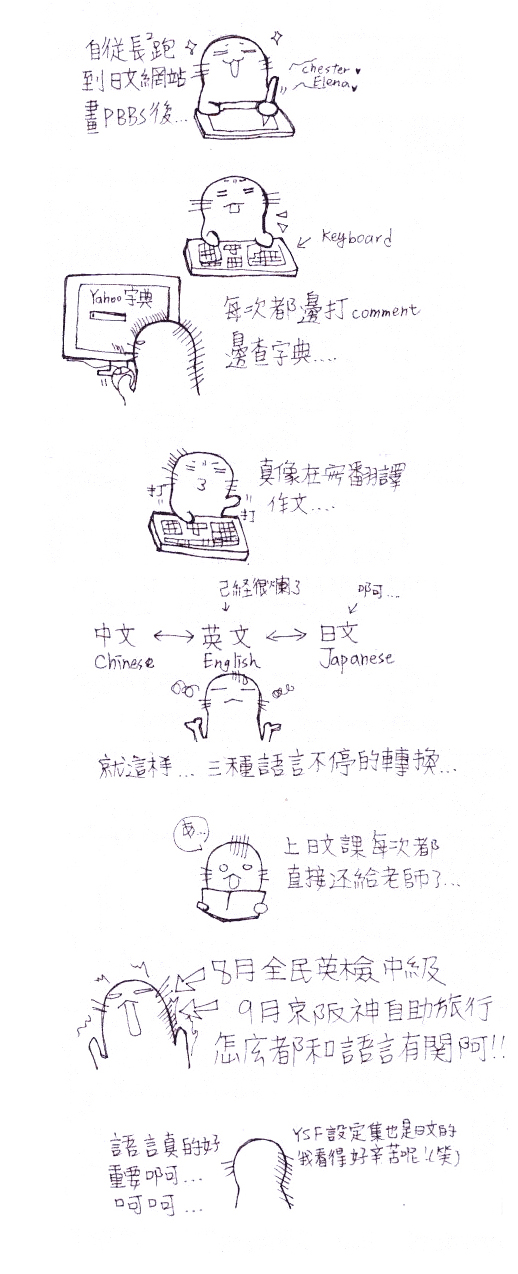 自從長跑
到日文網站
畫PBBS後...
chester♥
Elena♥
Keyboard
Yahoo字典
每次都邊打comment
邊查字典....
真像在寫翻譯
作文....
打
打
已經很爛了
啊可...
中文 ↔ 英文 ↔ 日文
Chinese English Japanese
就這樣...三種語言不停的轉換...
あ...
上日文課每次都
直接还給老師了...
8月全民英檢中級
9月京阪神自助旅行
怎庅都和語言有關阿!!
語言真的好
重要啊可...
呵呵...
YSF設定集也是日文的
我看得好辛苦呢!(笑)